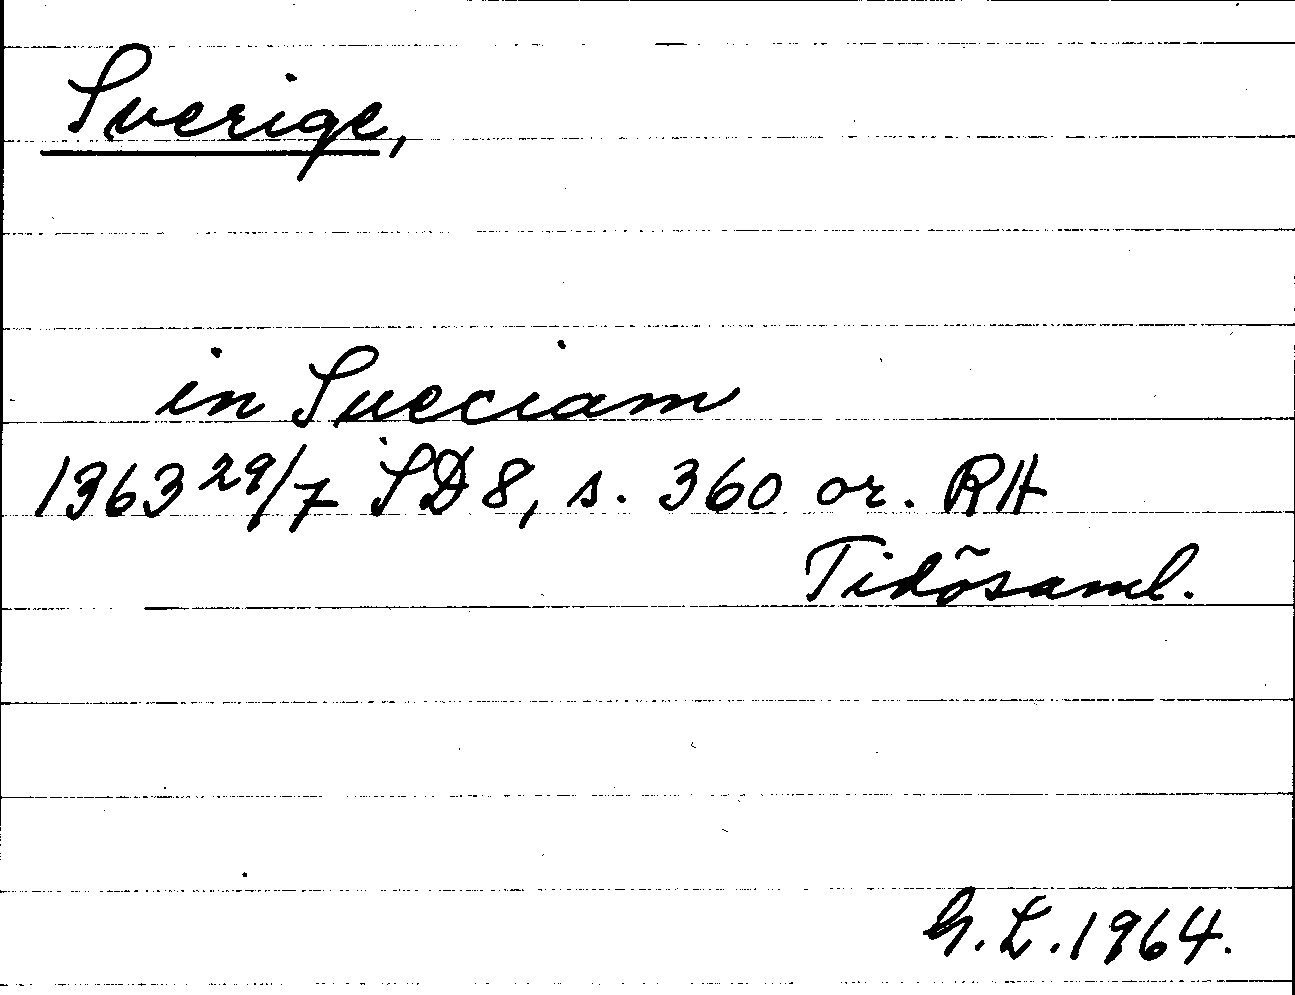 Sverige,
in Sueciam
1363 29/7 SD 8, s. 360 or. RH
Tidösaml.
G. L. 1964.